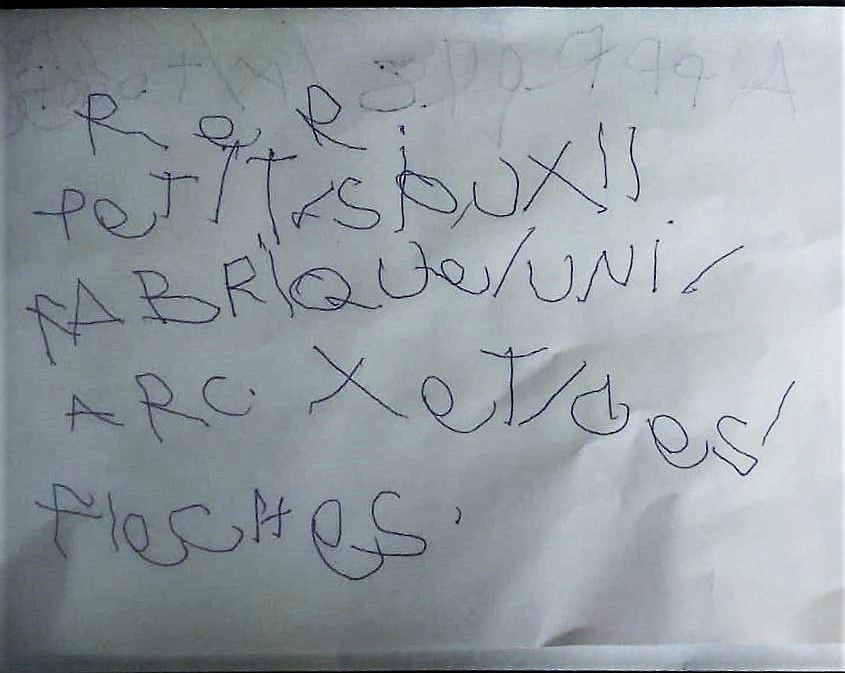 R e R i
PeTIT/sioux ll
FABRIQUe/UNi/
ARC X eT/des/
FlecHes.